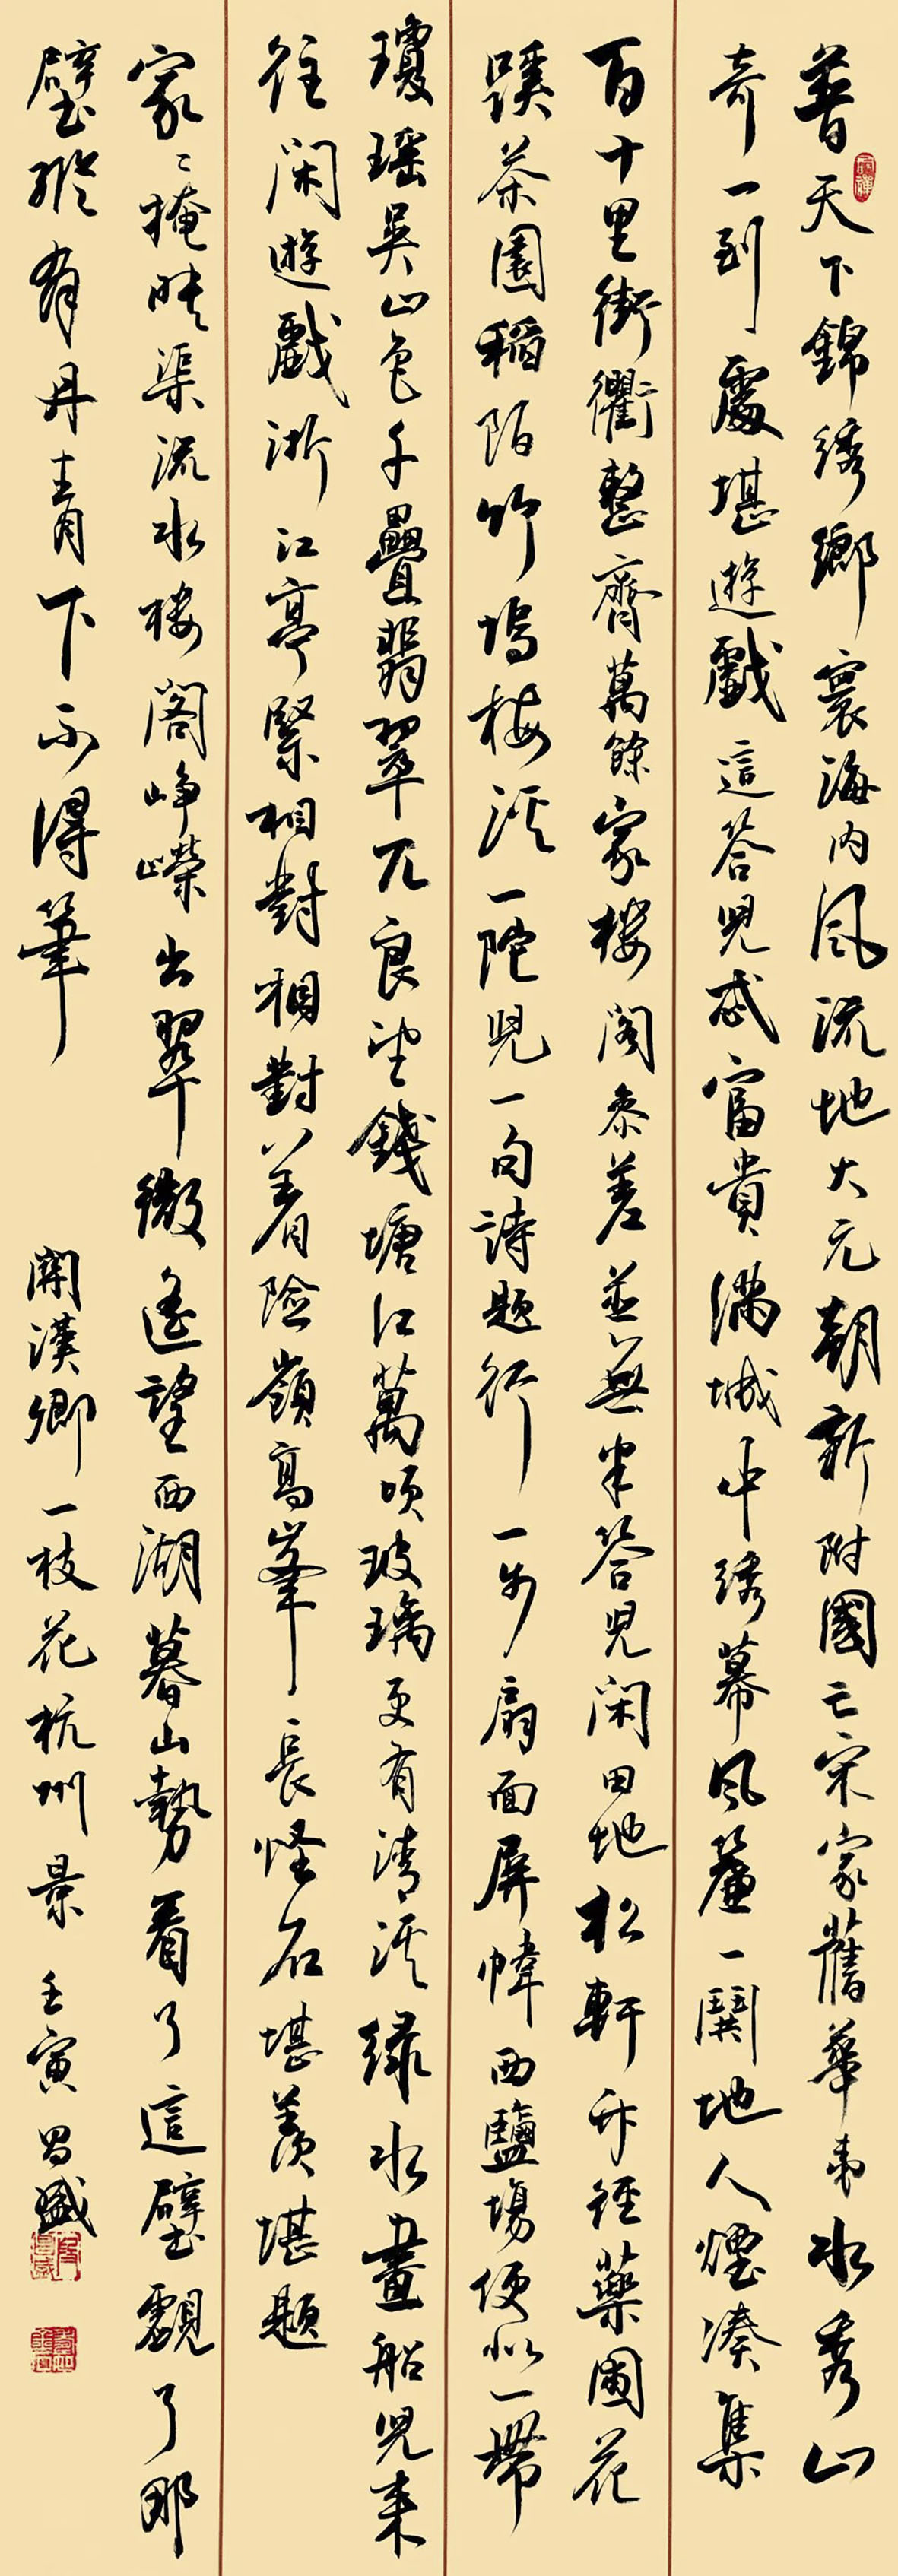 普天下錦绣鄉寰海内風流地大元朝新附國亡宋家舊華夷水秀山
奇一到處堪遊戲這答兒忒富貴滿城中绣幕風簾一鬨地人煙凑集
百十里街衢整齊萬餘家楼阁参差並無半答兒闲田地松軒竹徑藥圃花
蹊茶園稻陌竹塢梅溪一陀兒一句詩題行一步扇面屏幃西鹽場便似一帶
瓊瑶吴山色千疊翡翠兀良望錢塘江萬頃玻璃更有清溪绿水畫船兒来
往闲遊戲浙江亭緊相對相對着險嶺高峯長怪石堪羡堪題
家々掩映渠流水楼阁峥嵘出翠微遥望西湖暮山勢看了這壁覷了那
壁縱有丹青下不得筆
關漢卿一枝花杭州景壬寅昌盛